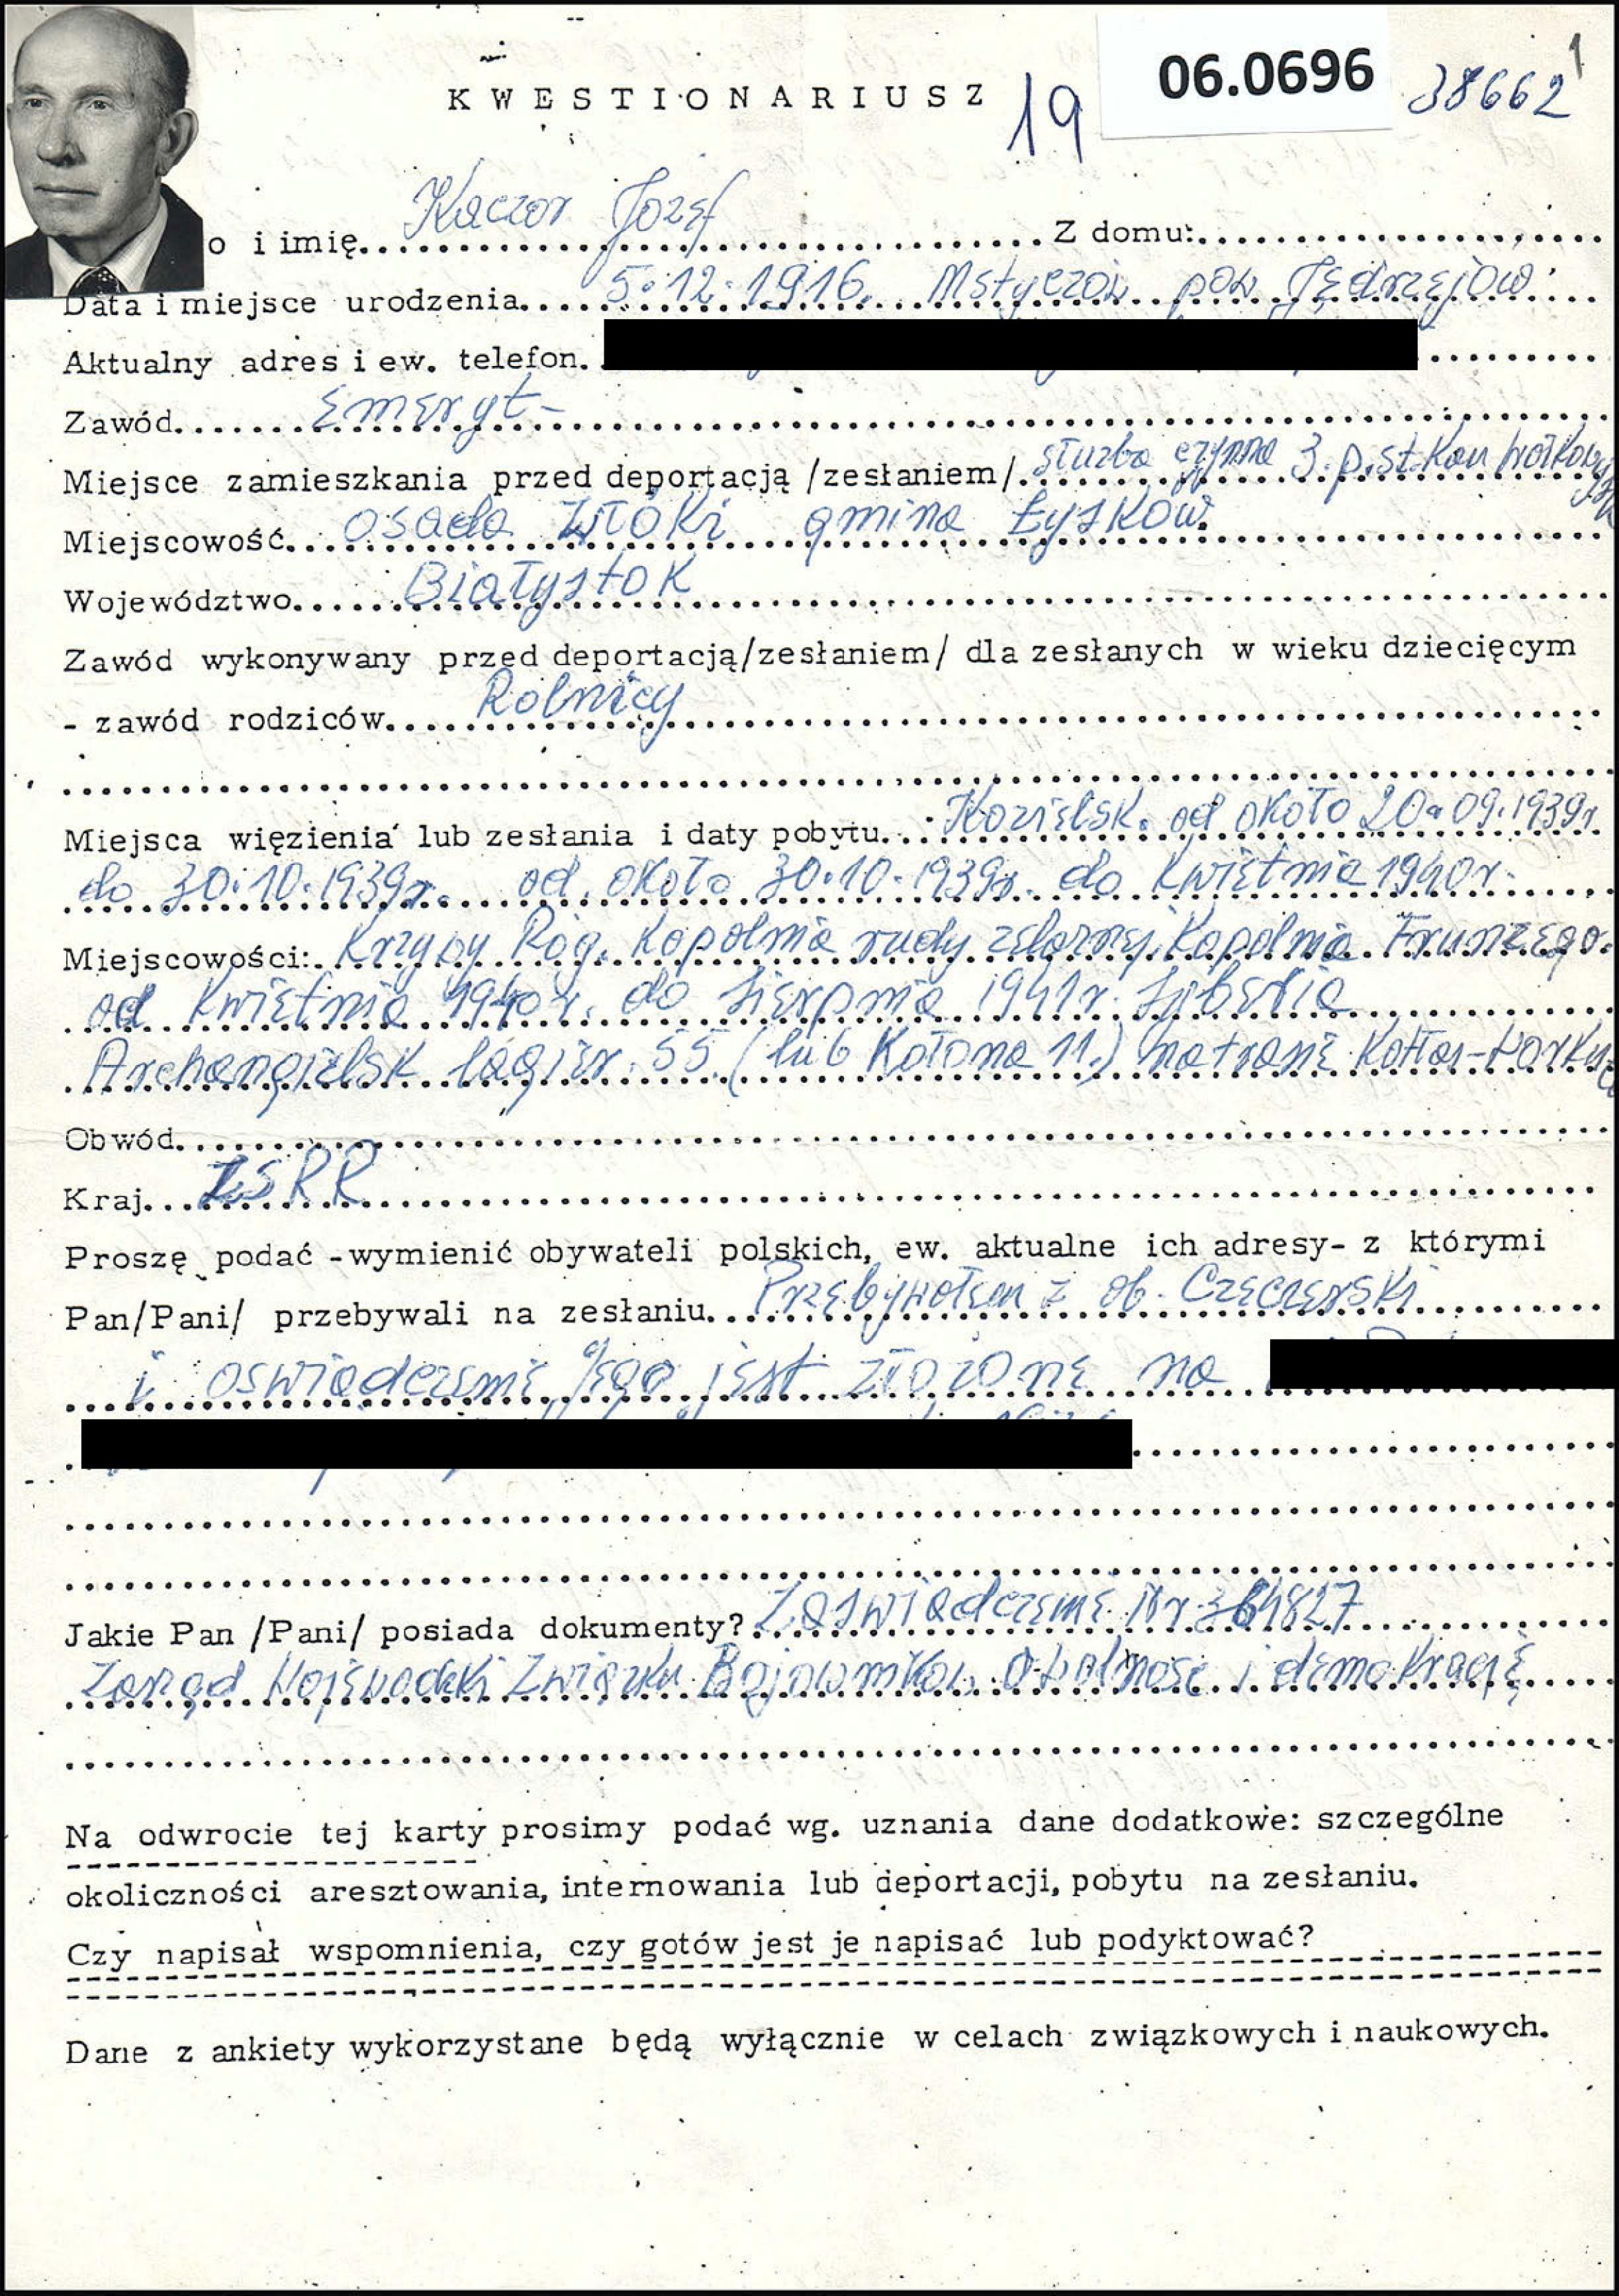 KWESTIONARIUSZ 19 06.0696 38662 1
o i imię Kaczor Jozef Z domu:
Data i miejsce urodzenia 5.12.1916. Mstyczów pow Jędrzejów
Aktualny adres i ew. telefon.
Zawód Emeryt-
Miejsce zamieszkania przed deportacją /zesłaniem/ służba czynna 3.p.st.Kon
Miejscowość osada gmina Łysków.
Województwo Białystok
Zawód wykonywany przed deportacją/zesłaniem/ dla zesłanych w wieku dziecięcym
- zawód rodziców Rolnicy
Miejsca więzienia lub zesłania i daty pobytu Kozielsk. od około 20.09.1939r
do 30.10.1939r. od około 30.10.1939r. do kwietnia 1940r.
Miejscowości: Krzywy Róg. Kopolnia rudy żelaznej. Kopolnia Frunzego.
od kwietnia 1940r. do sierpnia 1941r. Syberia
Archangielsk łagier 55 (lub Kołona 11.) na trasie Kotłas-Workuta
Obwód
Kraj ZSRR
Proszę podać -wymienić obywateli polskich, ew. aktualne ich adresy- z którymi
Pan/Pani/ przebywali na zesłaniu. Przebywałem z ob. Czeczerski
i oswiadczenie jego jest złożone na
Jakie Pan /Pani/ posiada dokumenty? Zaswiadczenie Nr 364827
Zarząd Wojewodzki Związku Bojownikow o wolnosc i demokracje
Na odwrocie tej karty prosimy podać wg. uznania dane dodatkowe: szczególne
okoliczności aresztowania, internowania lub deportacji, pobytu na zesłaniu.
Czy napisał wspomnienia, czy gotów jest je napisać lub podyktować?
Dane z ankiety wykorzystane będą wyłącznie w celach związkowych i naukowych.